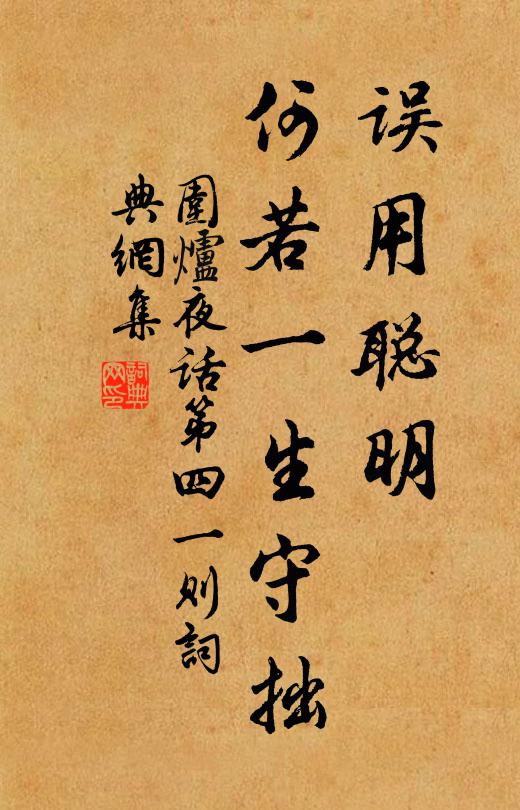 误用聪明
何若一生守拙
圍爐夜话第四一则詞
典網集
詞典网印